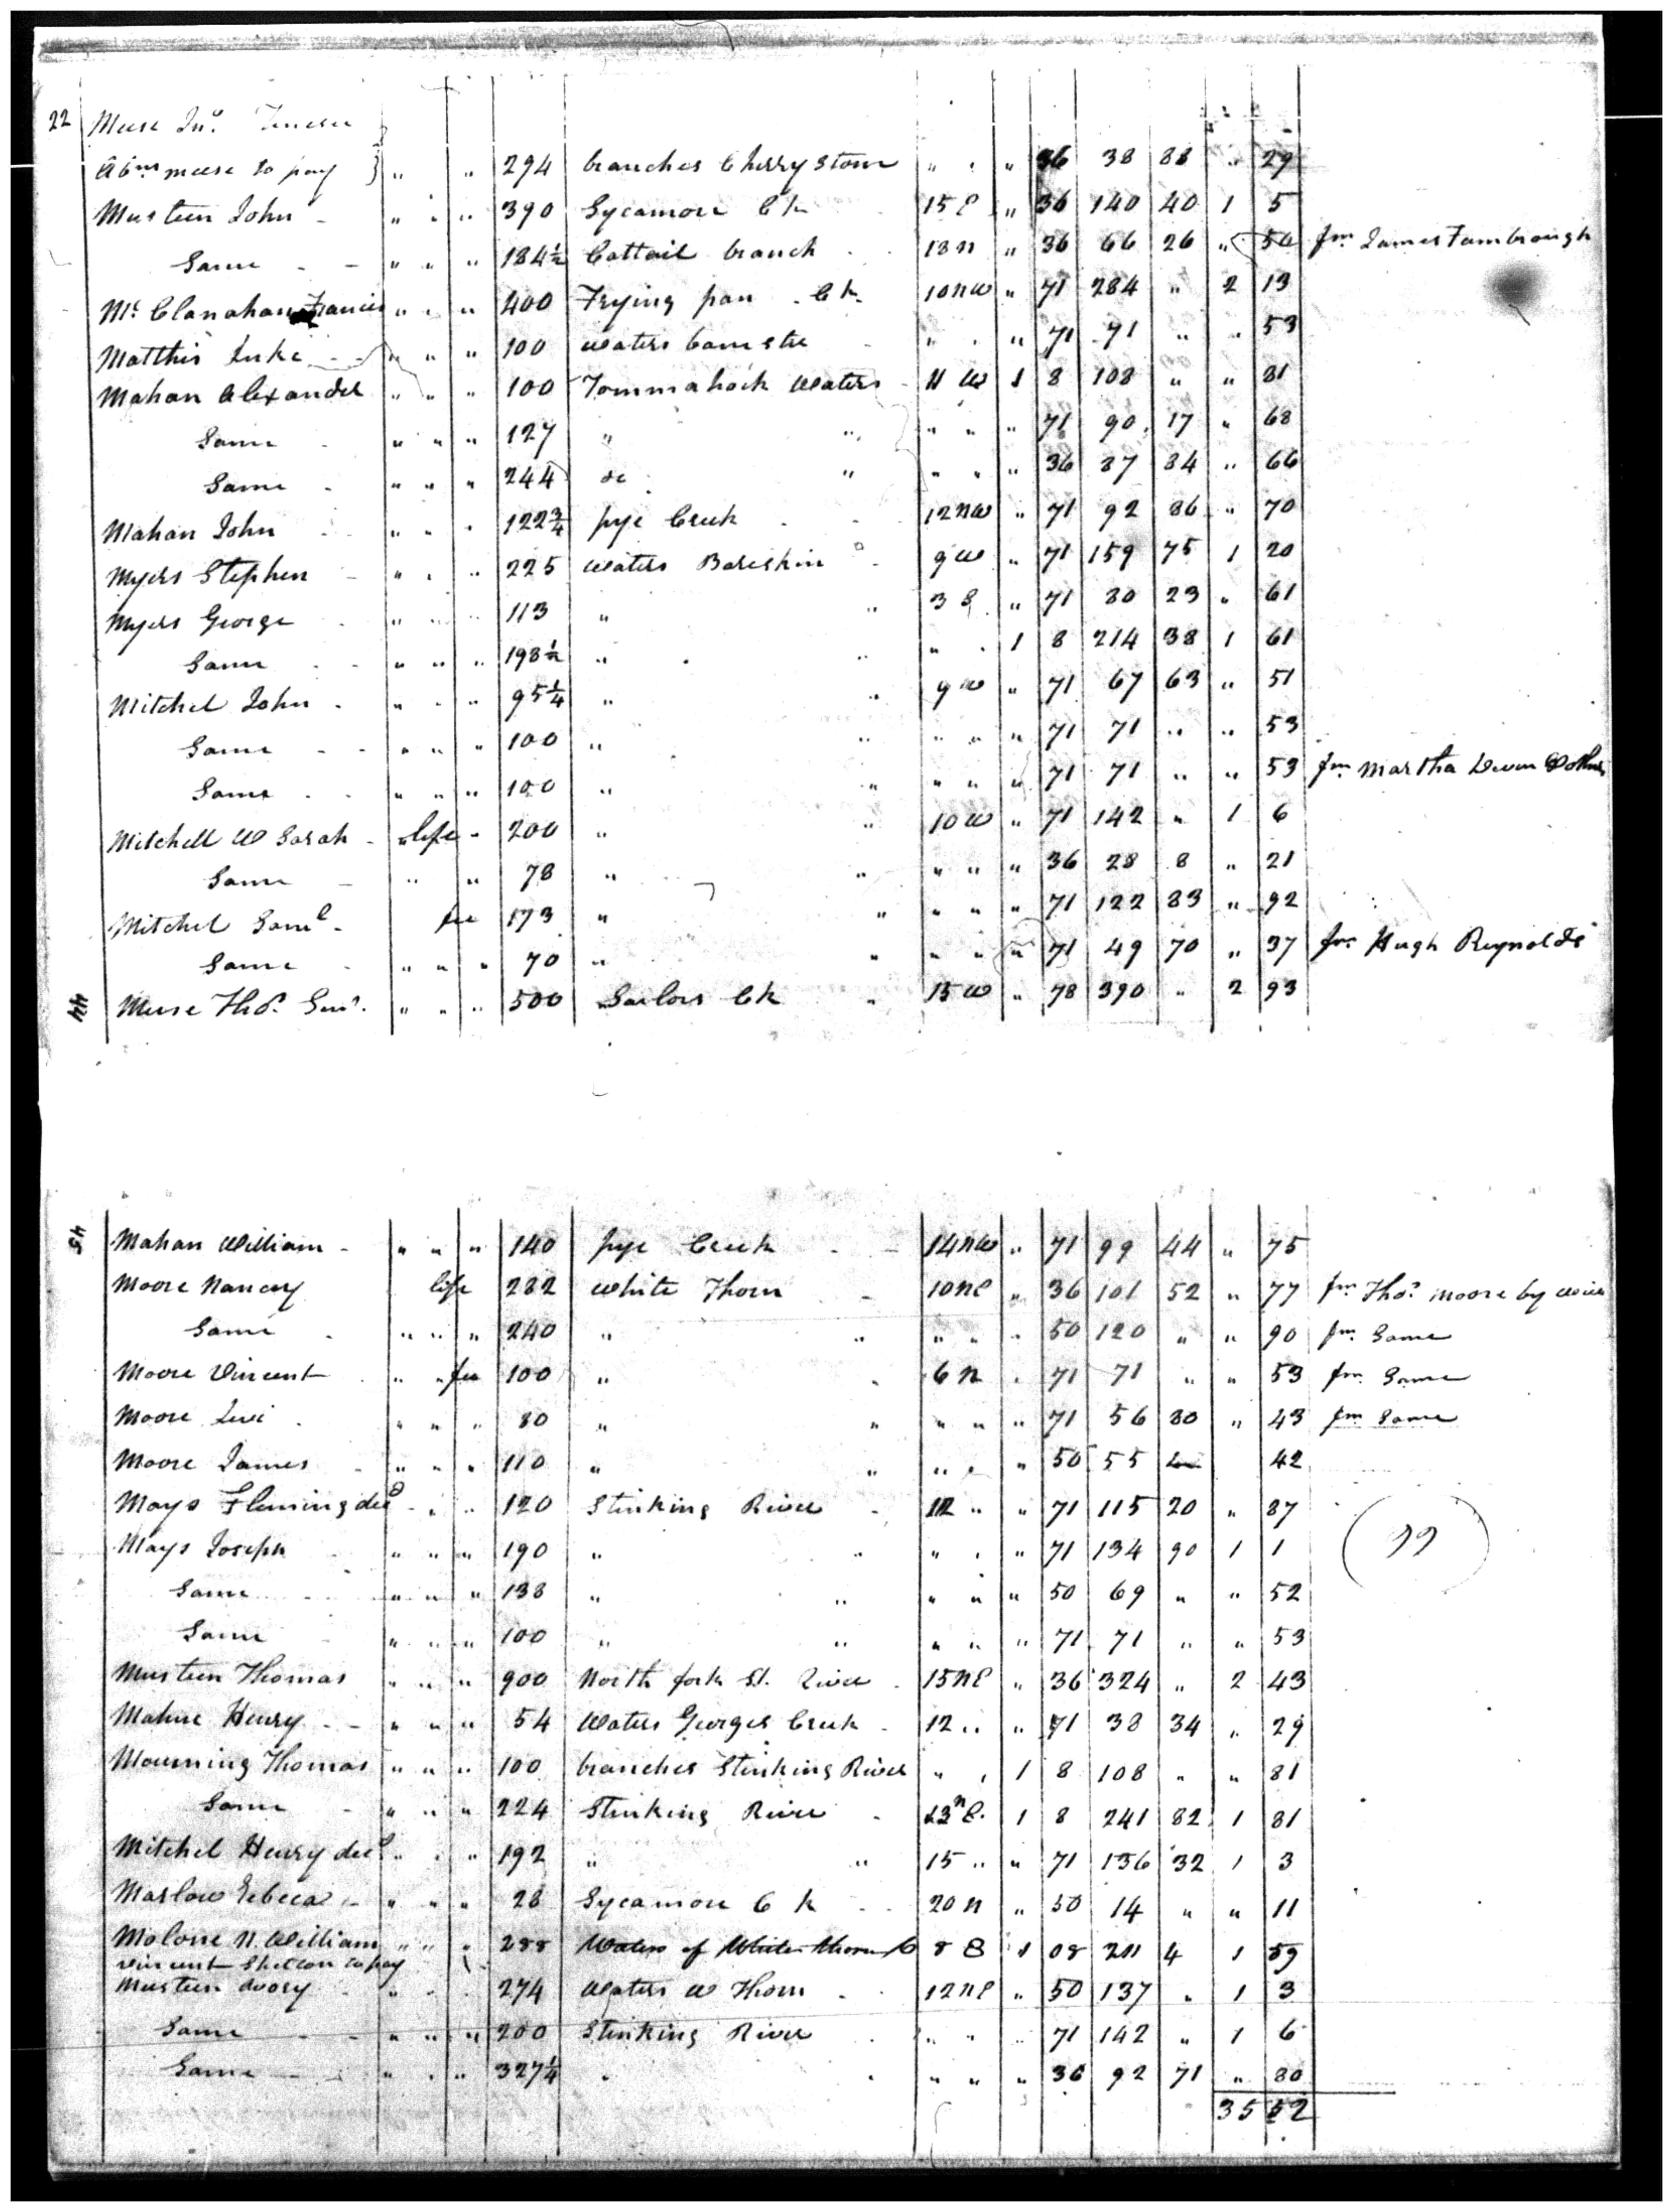 22 Muse Jno.
Abm muse to pay } " " 294 branches Cherry Stone " " " 36 38 88 " 29
Musteen John - " " " 390 Sycamore Ck 15 E " 36 140 40 1 5
Same - - " " " 184½ Cattail branch 13 n " 36 66 26 " 50 fm James Fambrough
Mc Clanahan Francis " " " 400 Frying pan Ck 10 nw " 71 284 " 2 13
Matthis Luke - - " " " 100 waters Banestre " " " 71 71 " " 53
Mahan Alexander " " " 100 Tommahock Waters 11 W 1 8 108 " " 81
Same " " " 127 " " " " " 71 90 17 " 68
Same - " " " 244 do " " " " 36 87 84 " 66
Mahan John " " " 122¾ pye Creek 12 nw " 71 92 86 " 70
Myers Stephen - " " " 225 waters Bareskin 9 w " 71 159 75 1 20
Myers George " " " 113 " " 3 S " 71 80 23 " 61
Same - - " " " 198½ " " " " 1 8 214 38 1 61
Mitchel John - " " " 95¼ " " 9 w " 71 67 63 " 51
Same - - " " " 100 " " " " " 71 71 " " 53
Same - - " " " 100 " " " " " 71 71 " " 53 fm Martha Devin
Mitchell W Sarah - " life - 200 " " 10 w " 71 142 " 1 6
Same - " " 78 " " " " " 36 28 8 " 21
Mitchel Saml - fee 173 " " " " " 71 122 83 " 92
Same - " " " 70 " " " " " 71 49 70 " 37 fm Hugh Reynolds
44 Muse Thos. Senr. " " " 500 Sailors Ck " 15 w " 78 390 " 2 93
45 Mahan William - " " " 140 pye Creek - - 14 nw " 71 99 44 " 75
Moore Nancy life 282 White Thorn - 10 ne " 36 101 52 " 77 fm Thos. Moore by will
Same - " " " 240 " " " " " 50 120 " " 90 fm Same
Moore Vincent " " fee 100 " " 6 n " 71 71 " " 53 fm Same
Moore Levi - " " " 80 " " " " " 71 56 80 " 43 fm Same
Moore James - " " " 110 " " " " " 50 55 42
Mays Fleming decd - " " 120 Stinking River - 12 " " 71 115 20 " 87
Mays Joseph " " " 190 " " " " " 71 134 90 1 1
Same - - " " " 138 " " " " " 50 69 " " 52
Same - " " " 100 " " " " " 71 71 " " 53
Musteen Thomas " " " 900 North fork St. River - 15 ne " 36 324 " 2 43
Mahue Henry - - " " " 54 Waters Georges Creek - 12 " " 71 38 34 " 29
Mourning Thomas " " " 100 branches Stinking River " " 1 8 108 " " 81
Same - " " " 224 Stinking River - 13 n E. 1 8 241 82 1 81
Mitchel Henry decd " " " 192 " " 15 " " 71 136 32 1 3
Marlow Rebeca - " " " 28 Sycamore C k - - 20 n " 50 14 " " 11
Malone N. William " " " 288 Waters of White thorn C 8 B 1 08 211 4 1 59
Vincent Shelton to pay
Musteen Avory " " " 274 Waters W Thorn - 12 ne " 50 137 " 1 3
Same - - " " " 200 Stinking River " " " 71 142 " 1 6
Same - - " " " 327¼ " " " " " 36 92 71 " 80
35 52